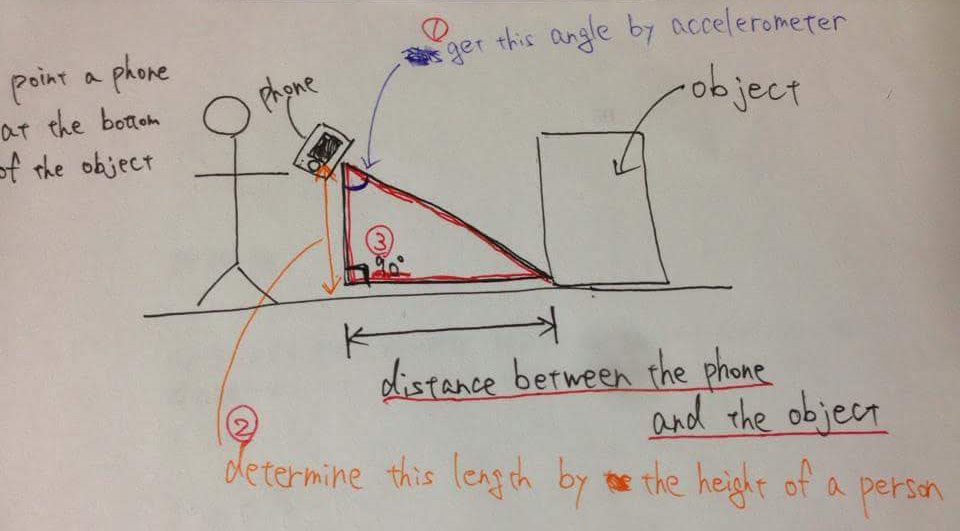 ①
get this angle by accelerometer
point a phone
at the bottom
of the object
phone
object
③
90°
distance between the phone
and the object
②
determine this length by the height of a person